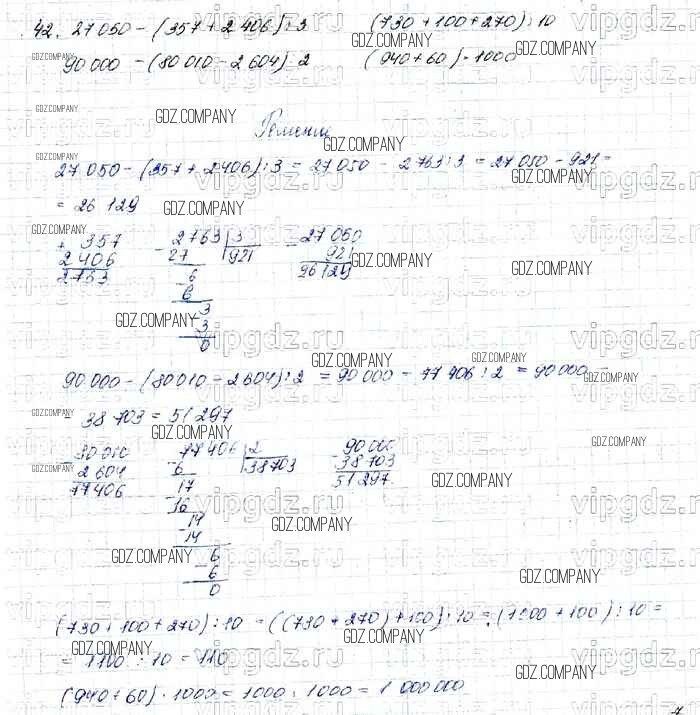 42. 27 050 - (357 + 2 406) : 3 (730 + 100 + 270) : 10
90 000 - (80 010 - 2 604) : 2 (940 + 60) · 1000
Решение
27 050 - (357 + 2 406) : 3 = 27 050 - 2 763 : 3 = 27 050 - 921 =
= 26 129
+ 357 - 2 763 | 3 - 27 050
2 406 27 921 921
2763 - 6 26 129
6
- 3
3
0
90 000 - (80 010 - 2 604) : 2 = 90 000 - 77 406 : 2 = 90 000 -
- 38 703 = 51 297
- 80 010 - 77 406 | 2 - 90 000
2 604 6 38703 38 703
77 406 - 17 51 297
16
- 14
- 14
- 6
6
0
(730 + 100 + 270) : 10 = ((730 + 270) + 100) : 10 = (1000 + 100) : 10 =
= 1100 : 10 = 110
(940 + 60) · 1000 = 1000 · 1000 = 1 000 000
GDZ.COMPANY
vipgdz.ru